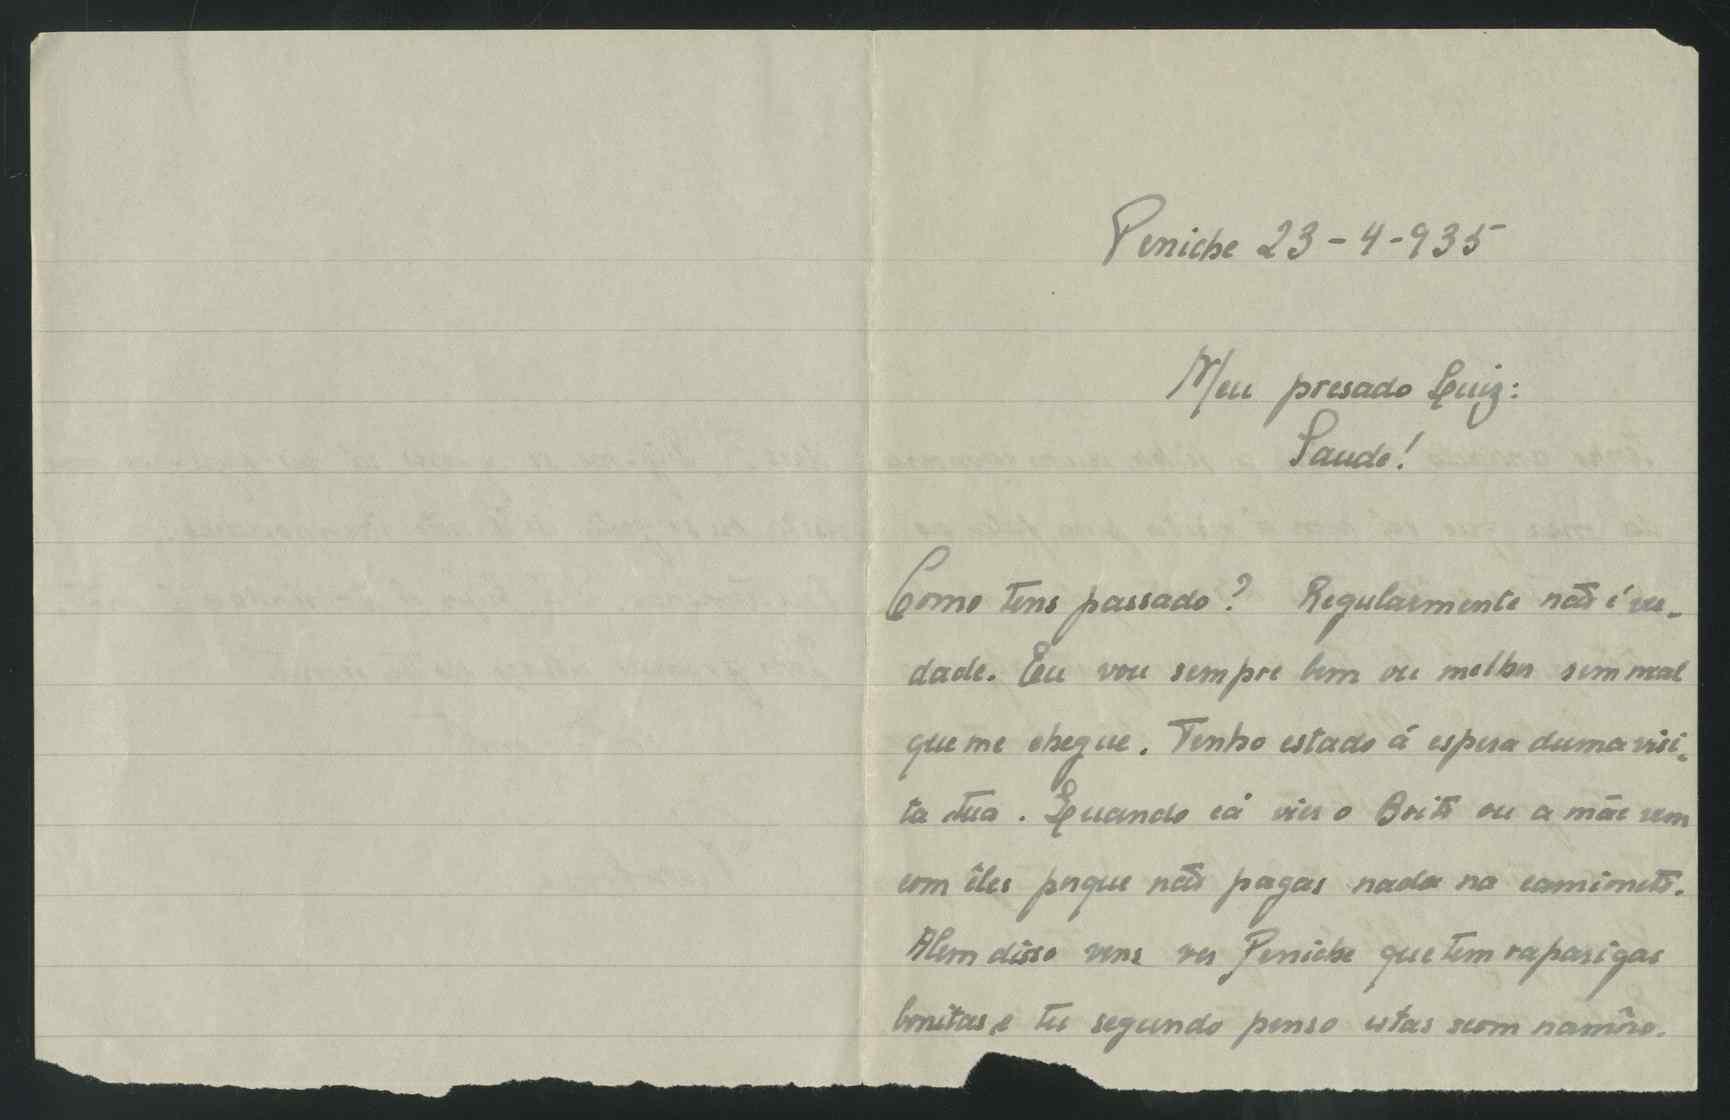 Peniche 23-4-935
Meu presado Luiz:
Saude!
Como tens passado? Regularmente não é ver-
dade. Eu vou sempre bem ou melhor sem mal
que me chegue. Tenho estado á espera duma visi-
ta tua. Quando cá vier o Brito ou a mãe vem
com êles porque não pagas nada na camioneta.
Alem disso vens ver Peniche que tem raparigas
bonitas e tu segundo penso estas sem namôro.